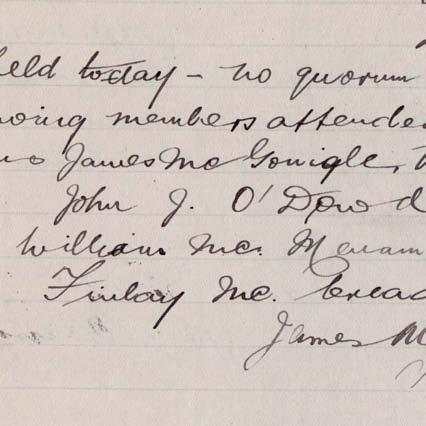 held today - no quorum
owing members attended
James Mc Gonigle,
John J. O'Dowd
William Mc. Menam
Finlay Mc. Cread
James M